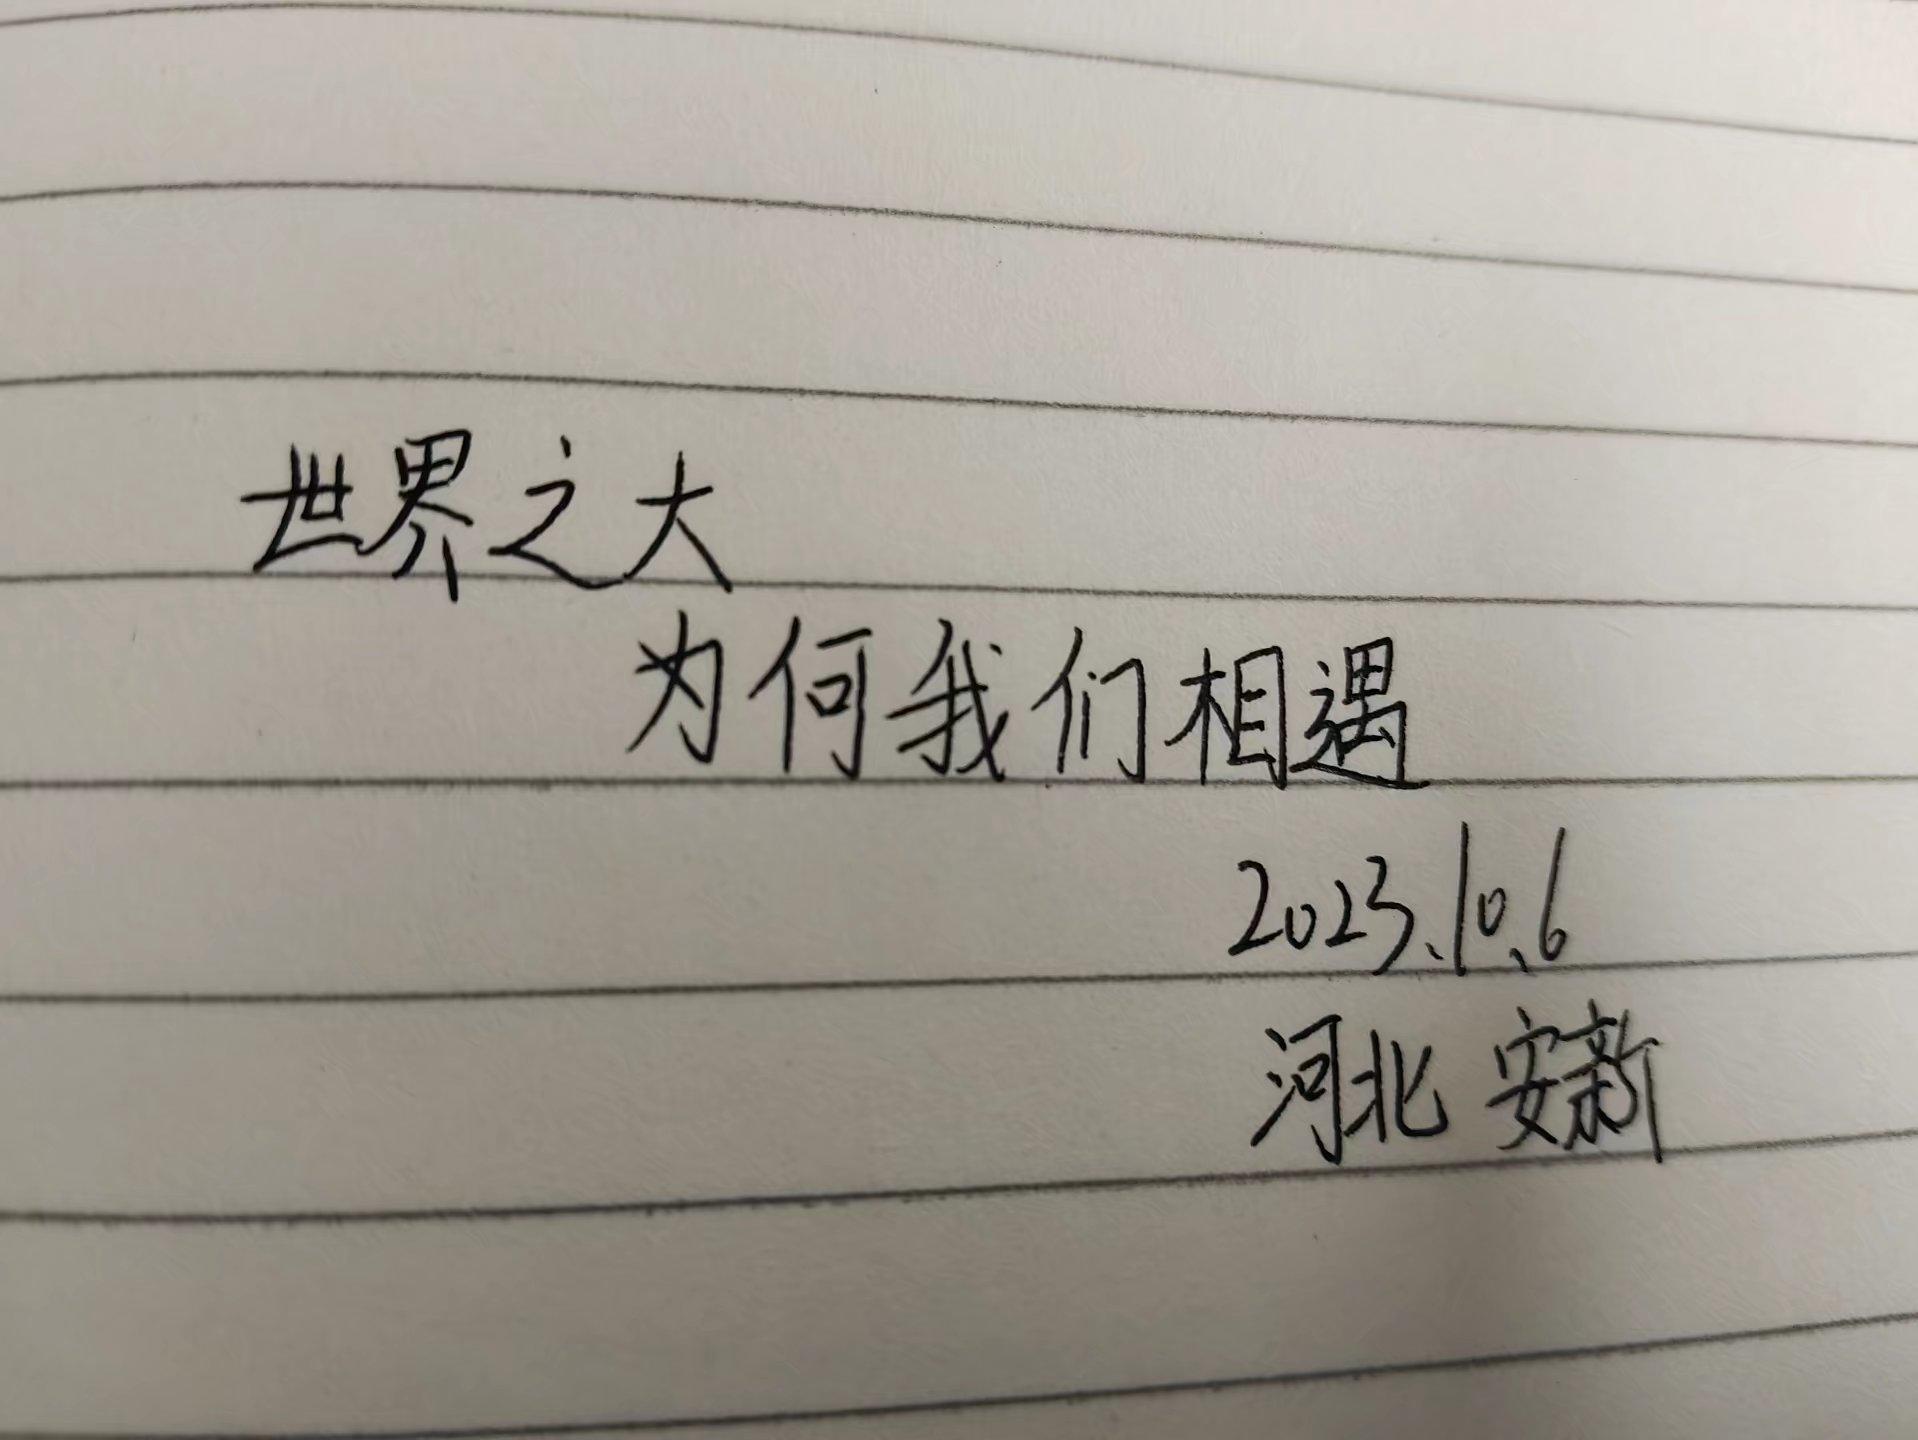 世界之大
为何我们相遇
2023.10.6
河北 安新